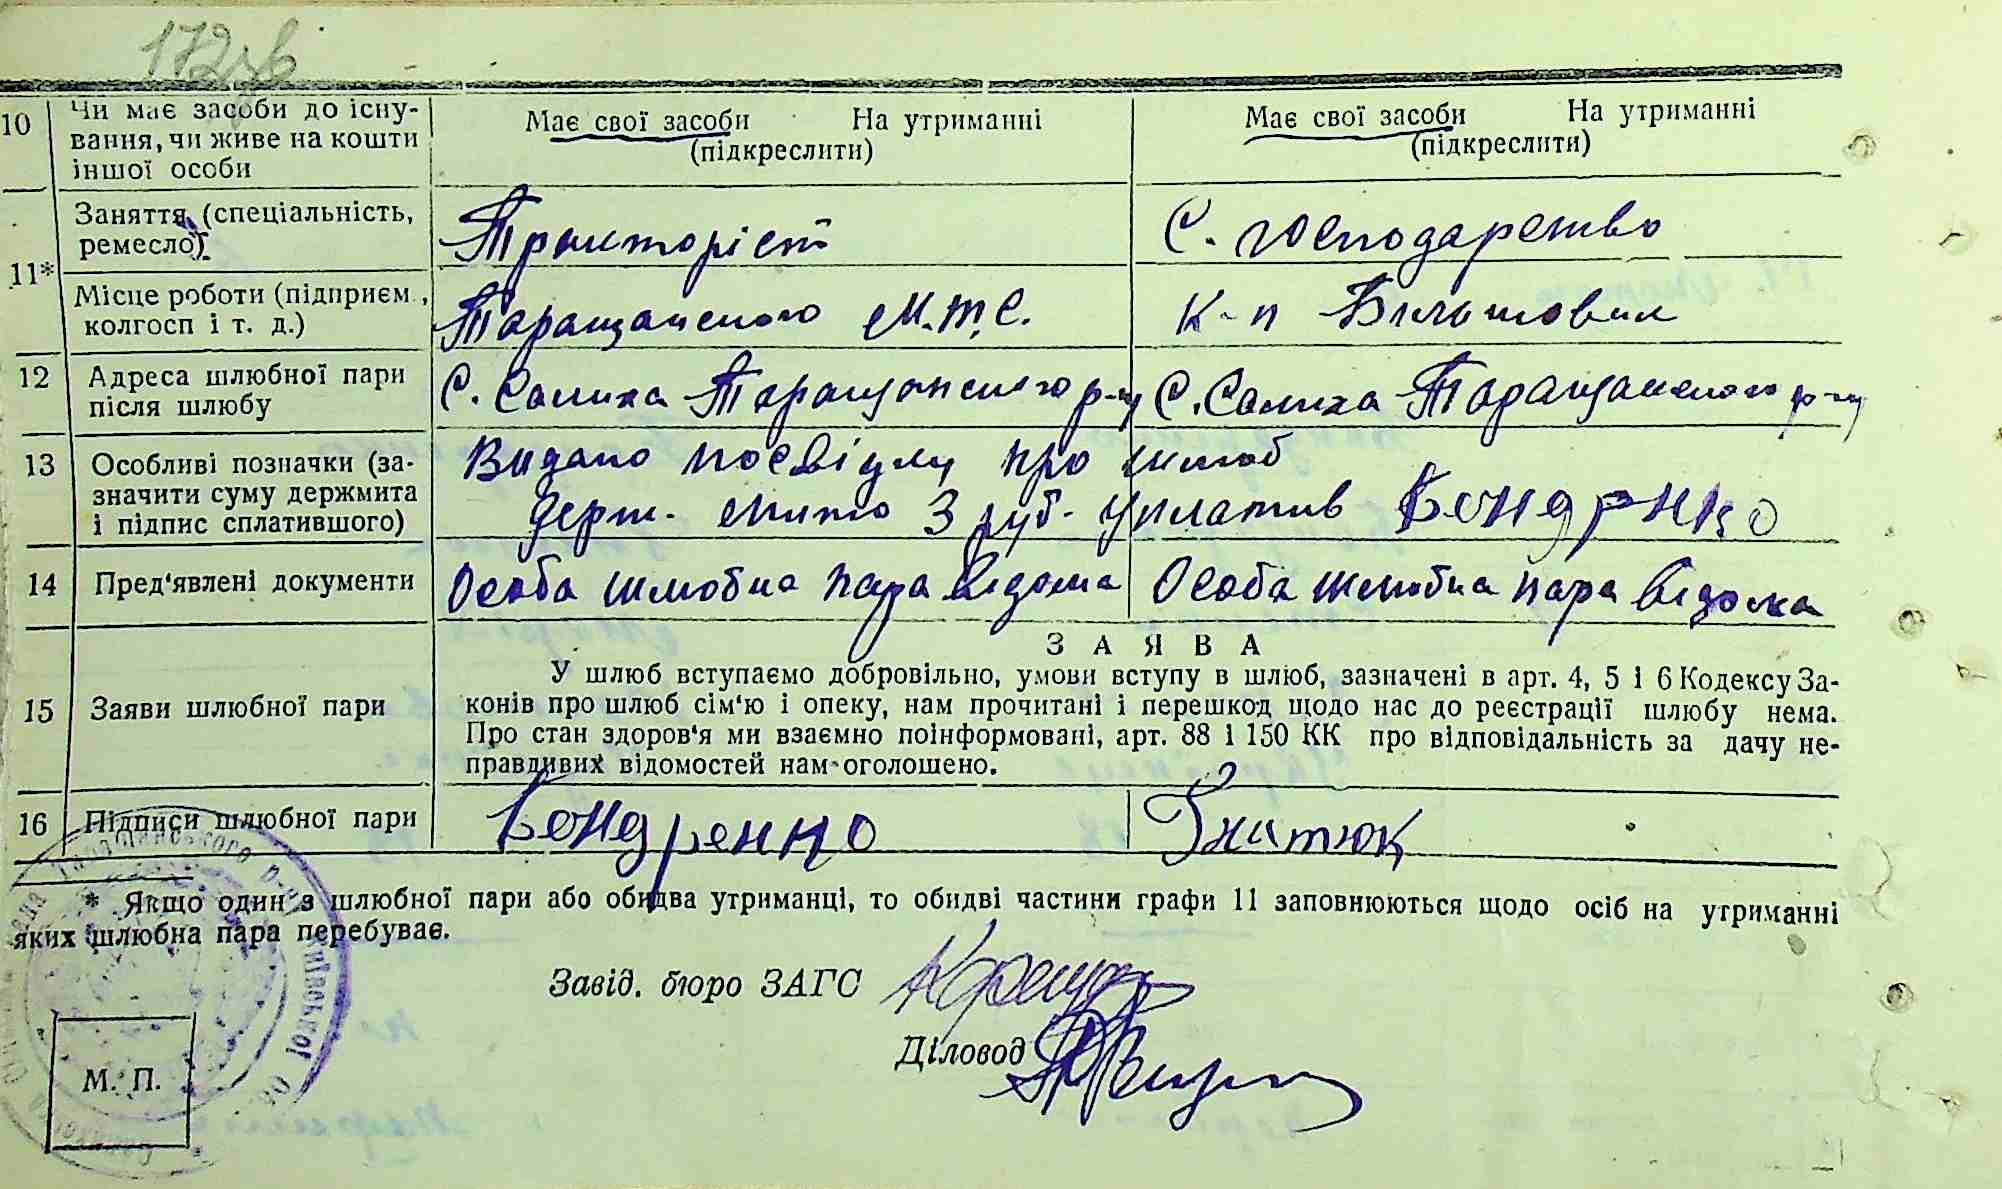 172зв
10 Чи має засоби до існу-
вання, чи живе на кошти
іншої особи
Має свої засоби На утриманні
(підкреслити)
Має свої засоби На утриманні
(підкреслити)
11*
Заняття (спеціальність,
ремесло)
Тракторіст
С. господарство
Місце роботи (підприєм.,
колгосп і т. д.)
Таращанського М.Т.С.
К-п Більшовик
12 Адреса шлюбної пари
після шлюбу
С. Салиха Таращанського р-ну
С. Салиха Таращанського р-ну
13 Особливі позначки (за-
значити суму держмита
і підпис сплатившого)
Видано посвідку про шлюб
держ. мито 3 руб. уплатив Бондрнко
14 Пред'явлені документи
Особа шлюбна пара відома
Особа шлюбна пара відома
15 Заяви шлюбної пари
ЗАЯВА
У шлюб вступаємо добровільно, умови вступу в шлюб, зазначені в арт. 4, 5 і 6 Кодексу За-
конів про шлюб сім'ю і опеку, нам прочитані і перешкод щодо нас до реєстрації шлюбу нема.
Про стан здоров'я ми взаємно поінформовані, арт. 88 і 150 КК про відповідальність за дачу не-
правдивих відомостей нам оголошено.
16 Підписи шлюбної пари
Бондренко
Гнатюк
* Якщо один з шлюбної пари або обидва утриманці, то обидві частини графи 11 заповнюються щодо осіб на утриманні
яких шлюбна пара перебуває.
Завід. бюро ЗАГС
Діловод
М. П.
Таращанського р-ну Київської обл.